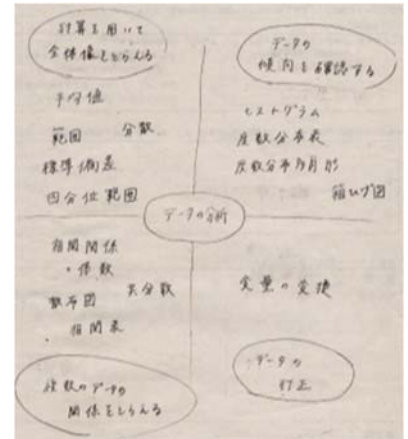 計算を用いて
全体像をとらえる
平均値
範囲 分散
標準偏差
四分位範囲
データの
傾向を確認する
ヒストグラム
度数分布表
度数分布多角形
箱ひげ図
データの分析
相関関係
・係数
散布図 共分散
・相関表
複数のデータの
関係をとらえる
変量の変換
データの
訂正